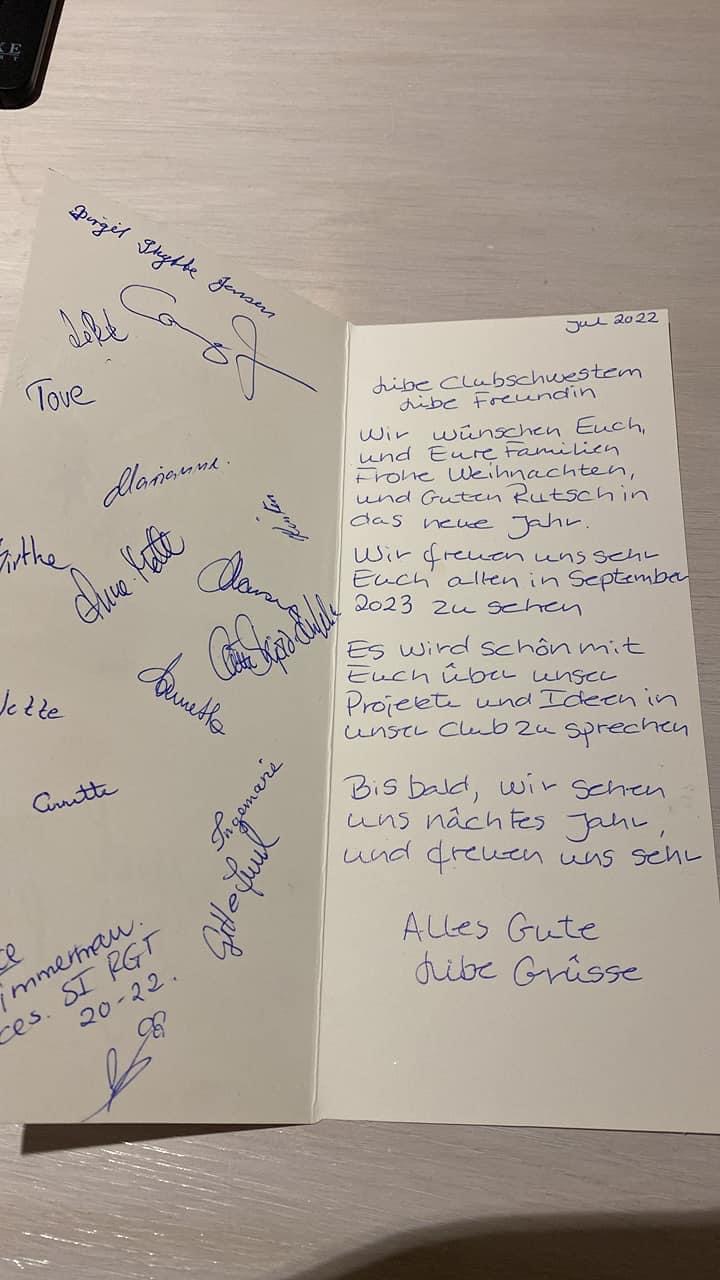 KE
Birgit Thytte Jensen
Tove
Marianne.
irthe
Jette
Annette
Ingemarie
Gitte Juul
immerman.
ces. SI RGT
20-22.
Jul 2022
Libe Clubschwestern
Libe Freundin
Wir wünschen Euch,
und Eure Familien
Frohe Weihnachten,
und Guten Rutsch in
das neue Jahr.
Wir freuen uns sehr
Euch allen in September
2023 zu sehen
Es wird schön mit
Euch über unser
Projekte und Ideen in
unser Club zu sprechen
Bis bald, wir sehen
uns nächtes Jahr,
und freuen uns sehr
Alles Gute
Libe Grüsse